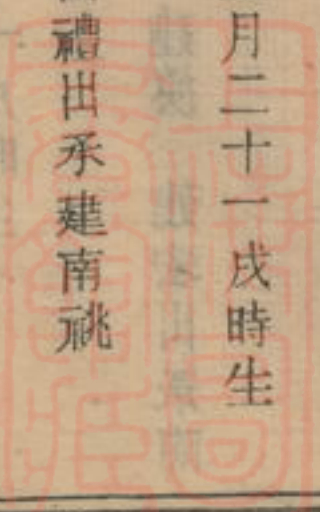 月二十一戌時生
禮出承建南祧